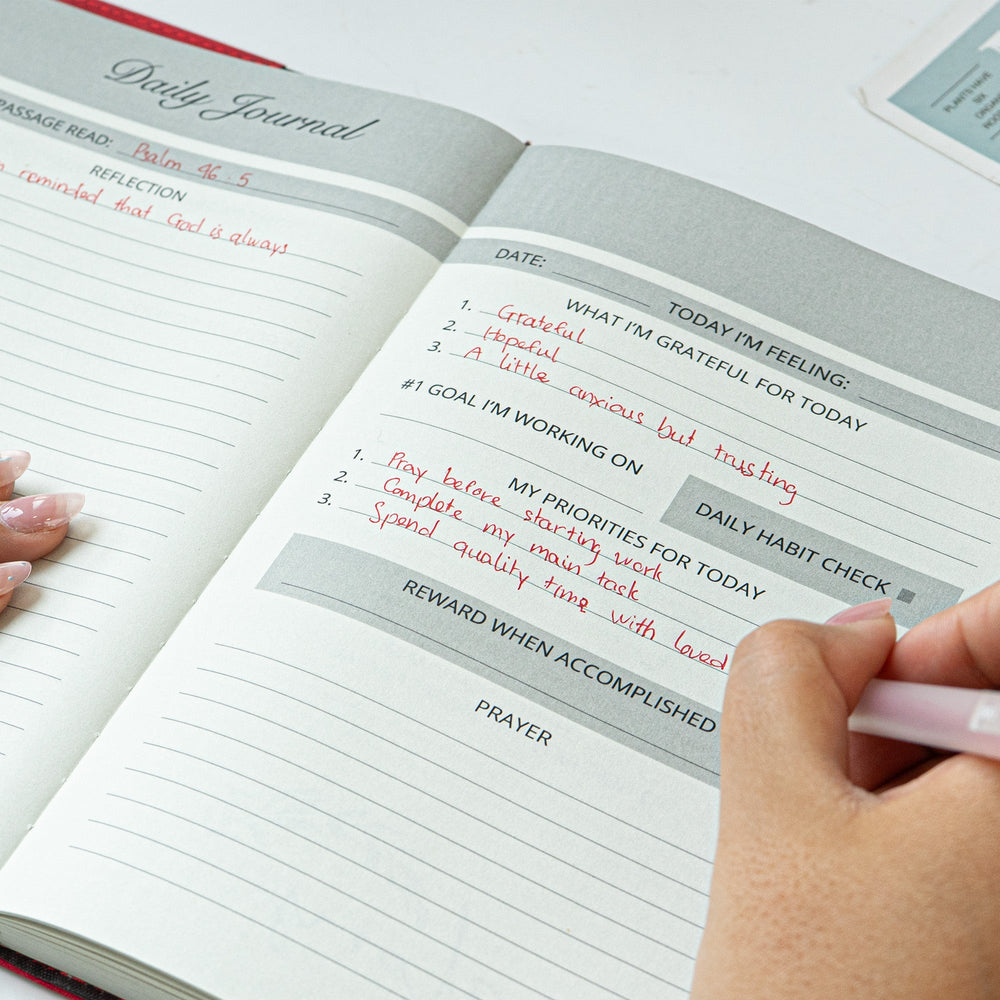 Daily Journal
PASSAGE READ: Psalm 46:5
REFLECTION
reminded that God is always
DATE:
TODAY I'M FEELING:
WHAT I'M GRATEFUL FOR TODAY
1. Grateful
2. Hopeful
3. A little anxious but trusting
#1 GOAL I'M WORKING ON
DAILY HABIT CHECK
MY PRIORITIES FOR TODAY
1. Pray before starting work
2. Complete my main task
3. Spend quality time with loved
REWARD WHEN ACCOMPLISHED
PRAYER
PLANTS HAVE
SIX